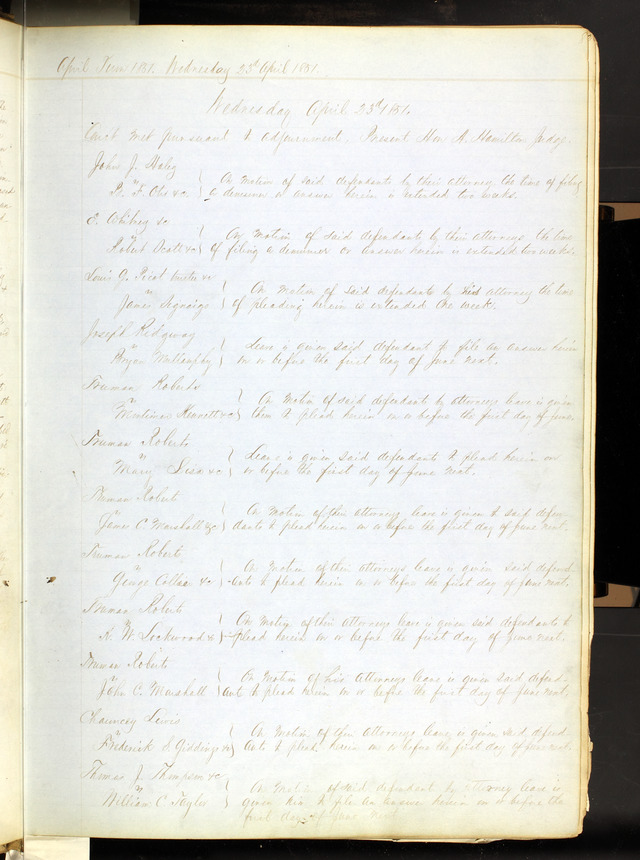 April Term 1851. Wednesday 23d April 1851.
Wednesday April 23d 1851.
Court met pursuant to adjournment. Present Hon A. Hamilton Judge.
John J. Haley
vs
P. F. &c
On motion of said defendants by their attorney the time of filing
a demurrer or answer herein is extended two weeks.
E. Whitney &c
vs
Robert &c
On motion of said defendants by their attorneys the time
of filing a demurrer or answer herein is extended two weeks.
Louis G. Picot &c
vs
James Signaigo
On motion of said defendants by his attorney the time
of pleading herein is extended one week.
Joseph Ridgway
vs
Bryan Mullanphy
Leave is given said defendant to file an answer herein
on or before the first day of June next.
Truman Roberts
vs
Mortimer Kennett &c
On motion of said defendants by attorneys leave is given
them to plead herein on or before the first day of June
Truman Roberts
vs
Mary Lisa &c
Leave is given said defendants to plead herein on
or before the first day of June next.
Truman Robert
vs
James C Marshall &c
On motion of their attorneys leave is given to said defen-
dants to plead herein on or before the first day of June next.
Truman Robert
vs
George Collier &c
On motion of their attorneys leave is given said defend
-ants to plead herein on or before the first day of June next.
Truman Roberts
vs
R. W. Lockwood &c
On motion of their attorneys leave is given said defendants to
plead herein on or before the first day of June next.
Truman Robert
vs
John C. Marshall
On motion of his attorneys leave is given said defend-
ants to plead herein on or before the first day of June next.
Chauncey Lewis
vs
Frederick S Giddings &c
On motion of their attorneys leave is given said defend
ants to plead herein on or before the first day of June next.
Thomas J. Thompson &c
vs
William C Taylor
On motion of said defendant by attorney leave is
given him to file an answer herein on or before the
first day of June next